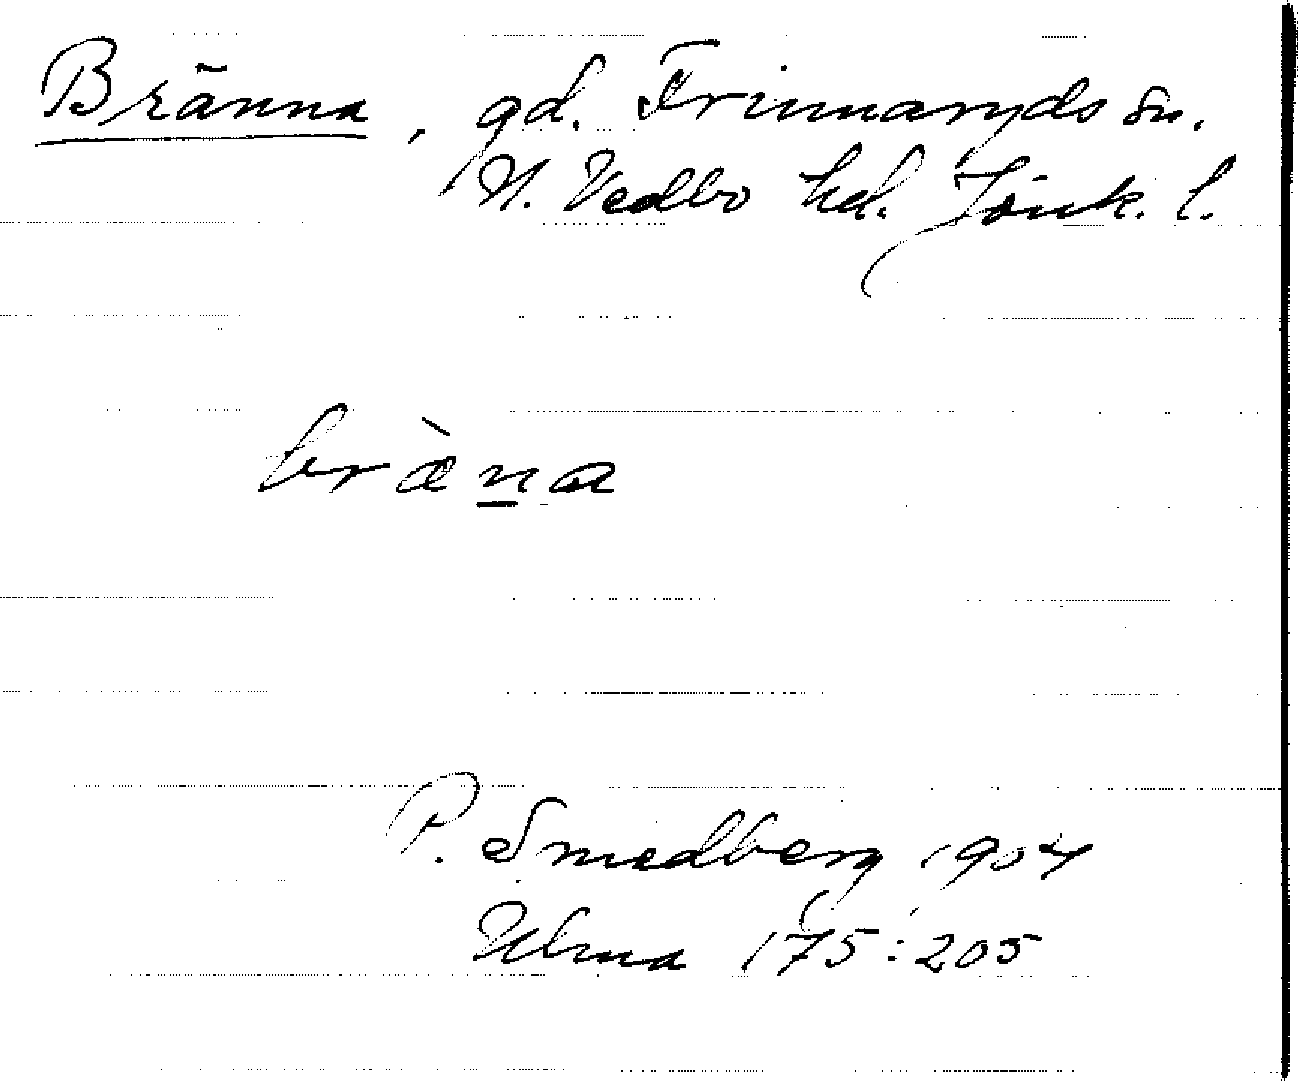 Bränna, gd. Frinnaryds sn.
N. Vedbo hd. Jönk. l.
bræ̀n̲a
P. Smedberg 1904
Ulma 175:205